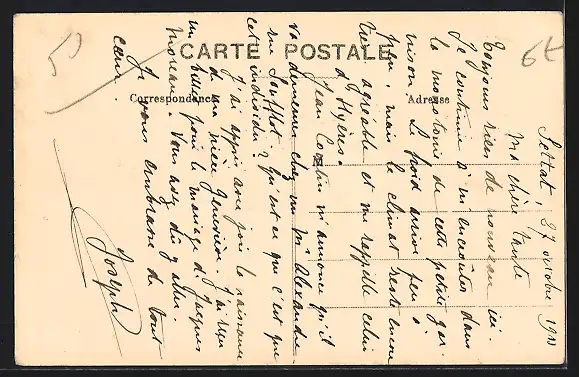 CARTE POSTALE
Correspondance
Adresse
6t
Settat, 27 octobre 1911
Ma chère Tante
Toujours rien de nouveau ici.
Je continue à m'encroûter dans
la monotonie de cette petite gar-
nison. Le froid arrive peu à
peu, mais le climat reste encore
très agréable et me rappelle celui
d'Hyères.
Jean m'annonce qu'il
va demeurer chez un Mr Alexandre
rue Soufflot ? Qu'est ce que c'est que
cet individu ?
J'ai appris avec joie la naissance
d'une nièce Geneviève. J'ai reçu
un billet pour le mariage de Jacques
Moreau. Vous avez dû y aller.
Je vous embrasse de tout
cœur.
Joseph